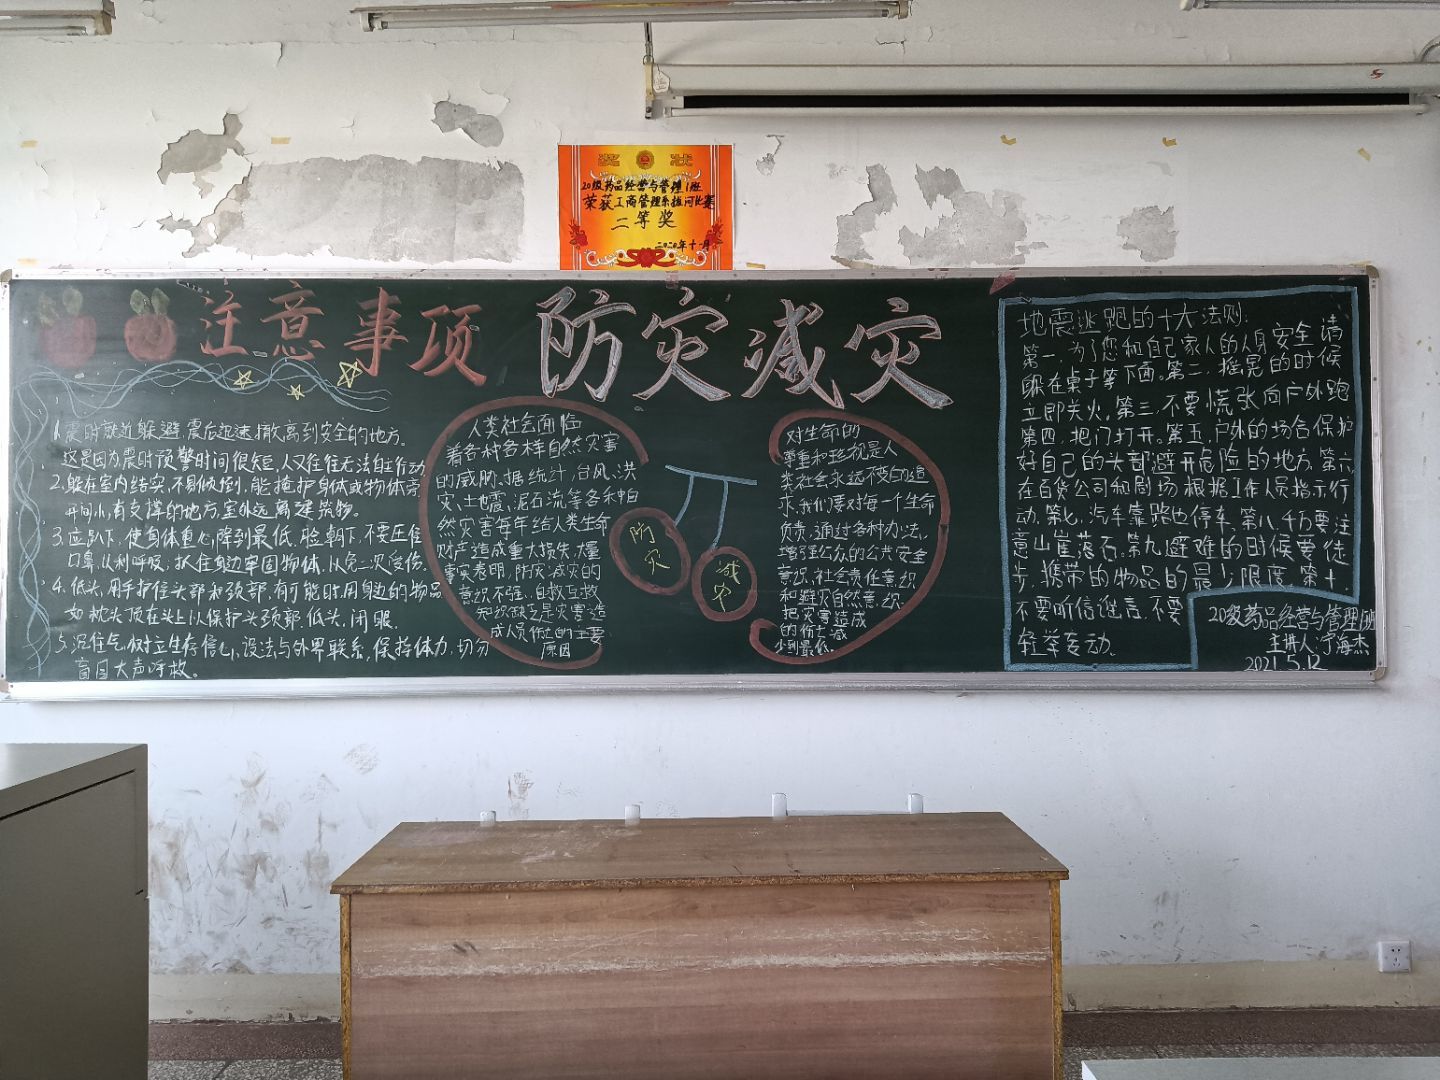 奖 状
20级药品经营与管理1班
荣获工商管理系拔河比赛
二等奖
二〇二〇年十一月
注意事项
防灾减灾
1.震时就近躲避,震后迅速撤离到安全的地方。
这是因为震时预警时间很短,人又往往无法自主行动
2.躲在室内结实,不易倾倒,能掩护身体或物体旁,
开间小,有支撑的地方,室外远离建筑物。
3.应趴下,使身体重心降到最低,脸朝下,不要压住
口鼻,以利呼吸;抓住身边牢固物体,以免二次受伤。
4.低头,用手护住头部和颈部,有可能时用身边的物品
如枕头顶在头上以保护头颈部,低头,闭眼。
5.沉住气,树立生存信心,设法与外界联系,保持体力,切勿
盲目大声呼救。
人类社会面临
着各种各样自然灾害
的威胁,据统计,台风、洪
灾、土地震、泥石流等各种自
然灾害每年给人类生命
财产造成重大损失,大量
事实表明,防灾减灾的
意识不强、自救互救
知识缺乏是灾害造
成人员伤亡的主要
原因
防灾
减灾
对生命的
尊重和珍视是人
类社会永远不变的追
求,我们要对每一个生命
负责,通过各种办法,
增强公众的公共安全
意识,社会责任意识
和避灾自然意识,
把灾害造成
的伤亡减
少到最低。
地震逃跑的十大法则:
第一,为了您和自己家人的人身安全请
躲在桌子等下面。第二,摇晃的时候
立即关火。第三,不要慌张向户外跑
第四,把门打开。第五,户外的场合保护
好自己的头部避开危险的地方。第六,
在百货公司和剧场根据工作人员指示行
动。第七,汽车靠路边停车。第八,千万要注
意山崖落石。第九,避难的时候要徒
步,携带的物品的最少限度。第十
不要听信谣言,不要
轻举妄动。
20级药品经营与管理1班
主讲人:宁海杰
2021.5.12